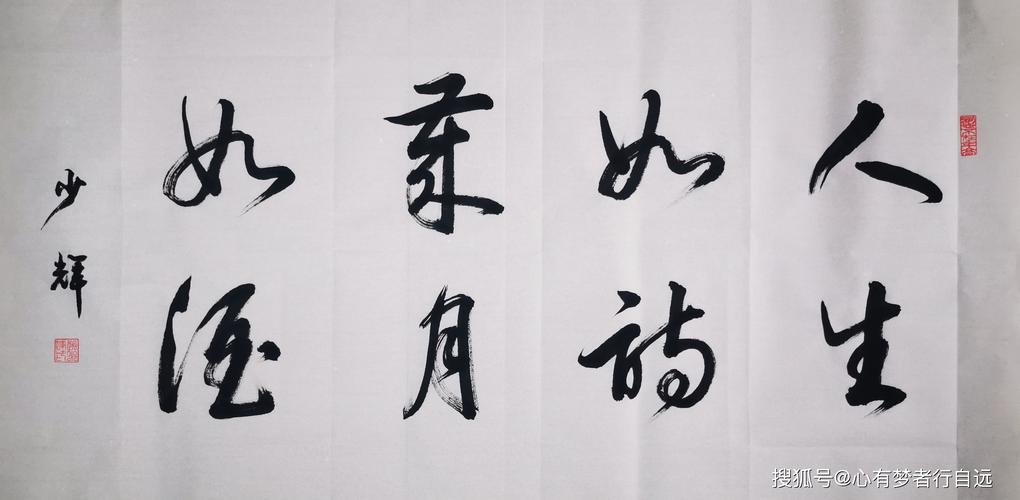 人生
如詩
歲月
如酒
少輝
搜狐号@心有梦者行自远